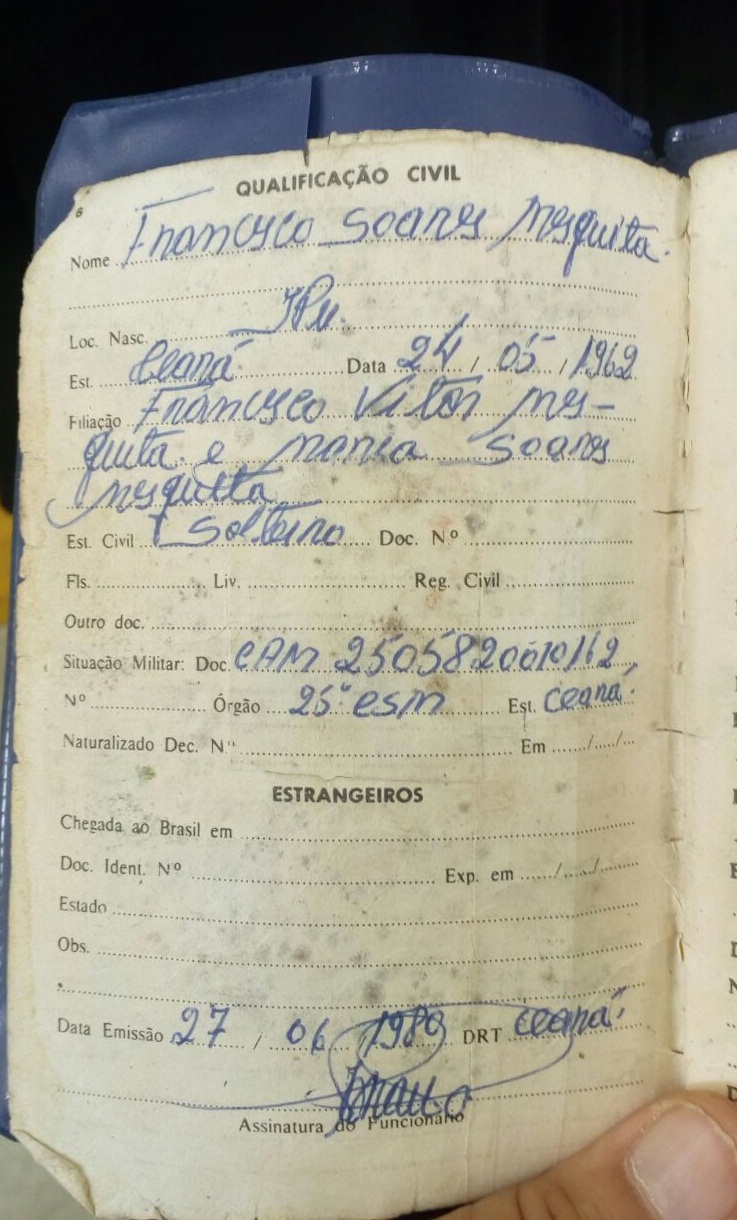 QUALIFICAÇÃO CIVIL
6
Nome Francisco Soares Mesquita.
Loc. Nasc. IPu.
Est. Ceará Data 24 / 05 / 1962
Filiação Francisco Vitor Mes-
quita e Maria Soares
Mesquita
Est. Civil Solteiro Doc. Nº
Fls. Liv. Reg. Civil
Outro doc.
Situação Militar: Doc. CAM
Nº Órgão 25ª CSM Est. Ceará.
Naturalizado Dec. Nº Em / /
ESTRANGEIROS
Chegada ao Brasil em
Doc. Ident. Nº Exp. em / /
Estado
Obs.
Data Emissão 27 / 06 1980 DRT Ceará.
Assinatura do Funcionário